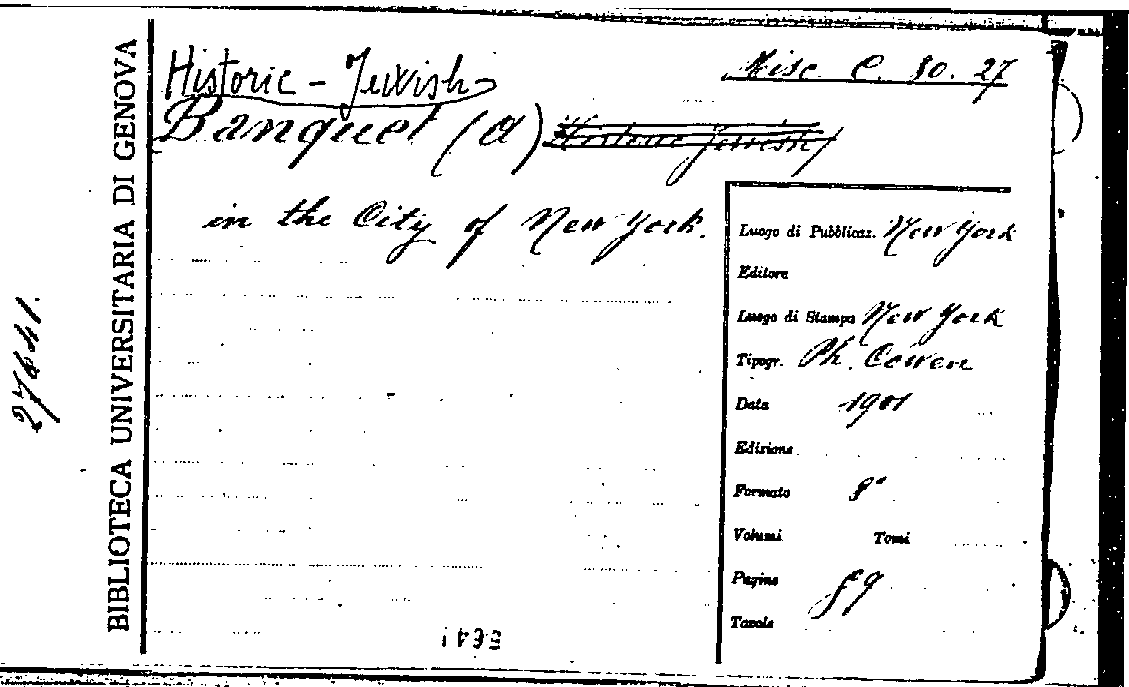 Historic - Jewish
Misc. C. 80. 27
Banquet (a) Historic Jewish)
in the City of New York.
BIBLIOTECA UNIVERSITARIA DI GENOVA
27641.
Luogo di Pubblicaz. New York
Editore
Luogo di Stampa New York
Tipogr. Ph. Cowen
Data 1901
Edizione
Formato 8°
Volumi Tomi
Pagine 89
Tavole